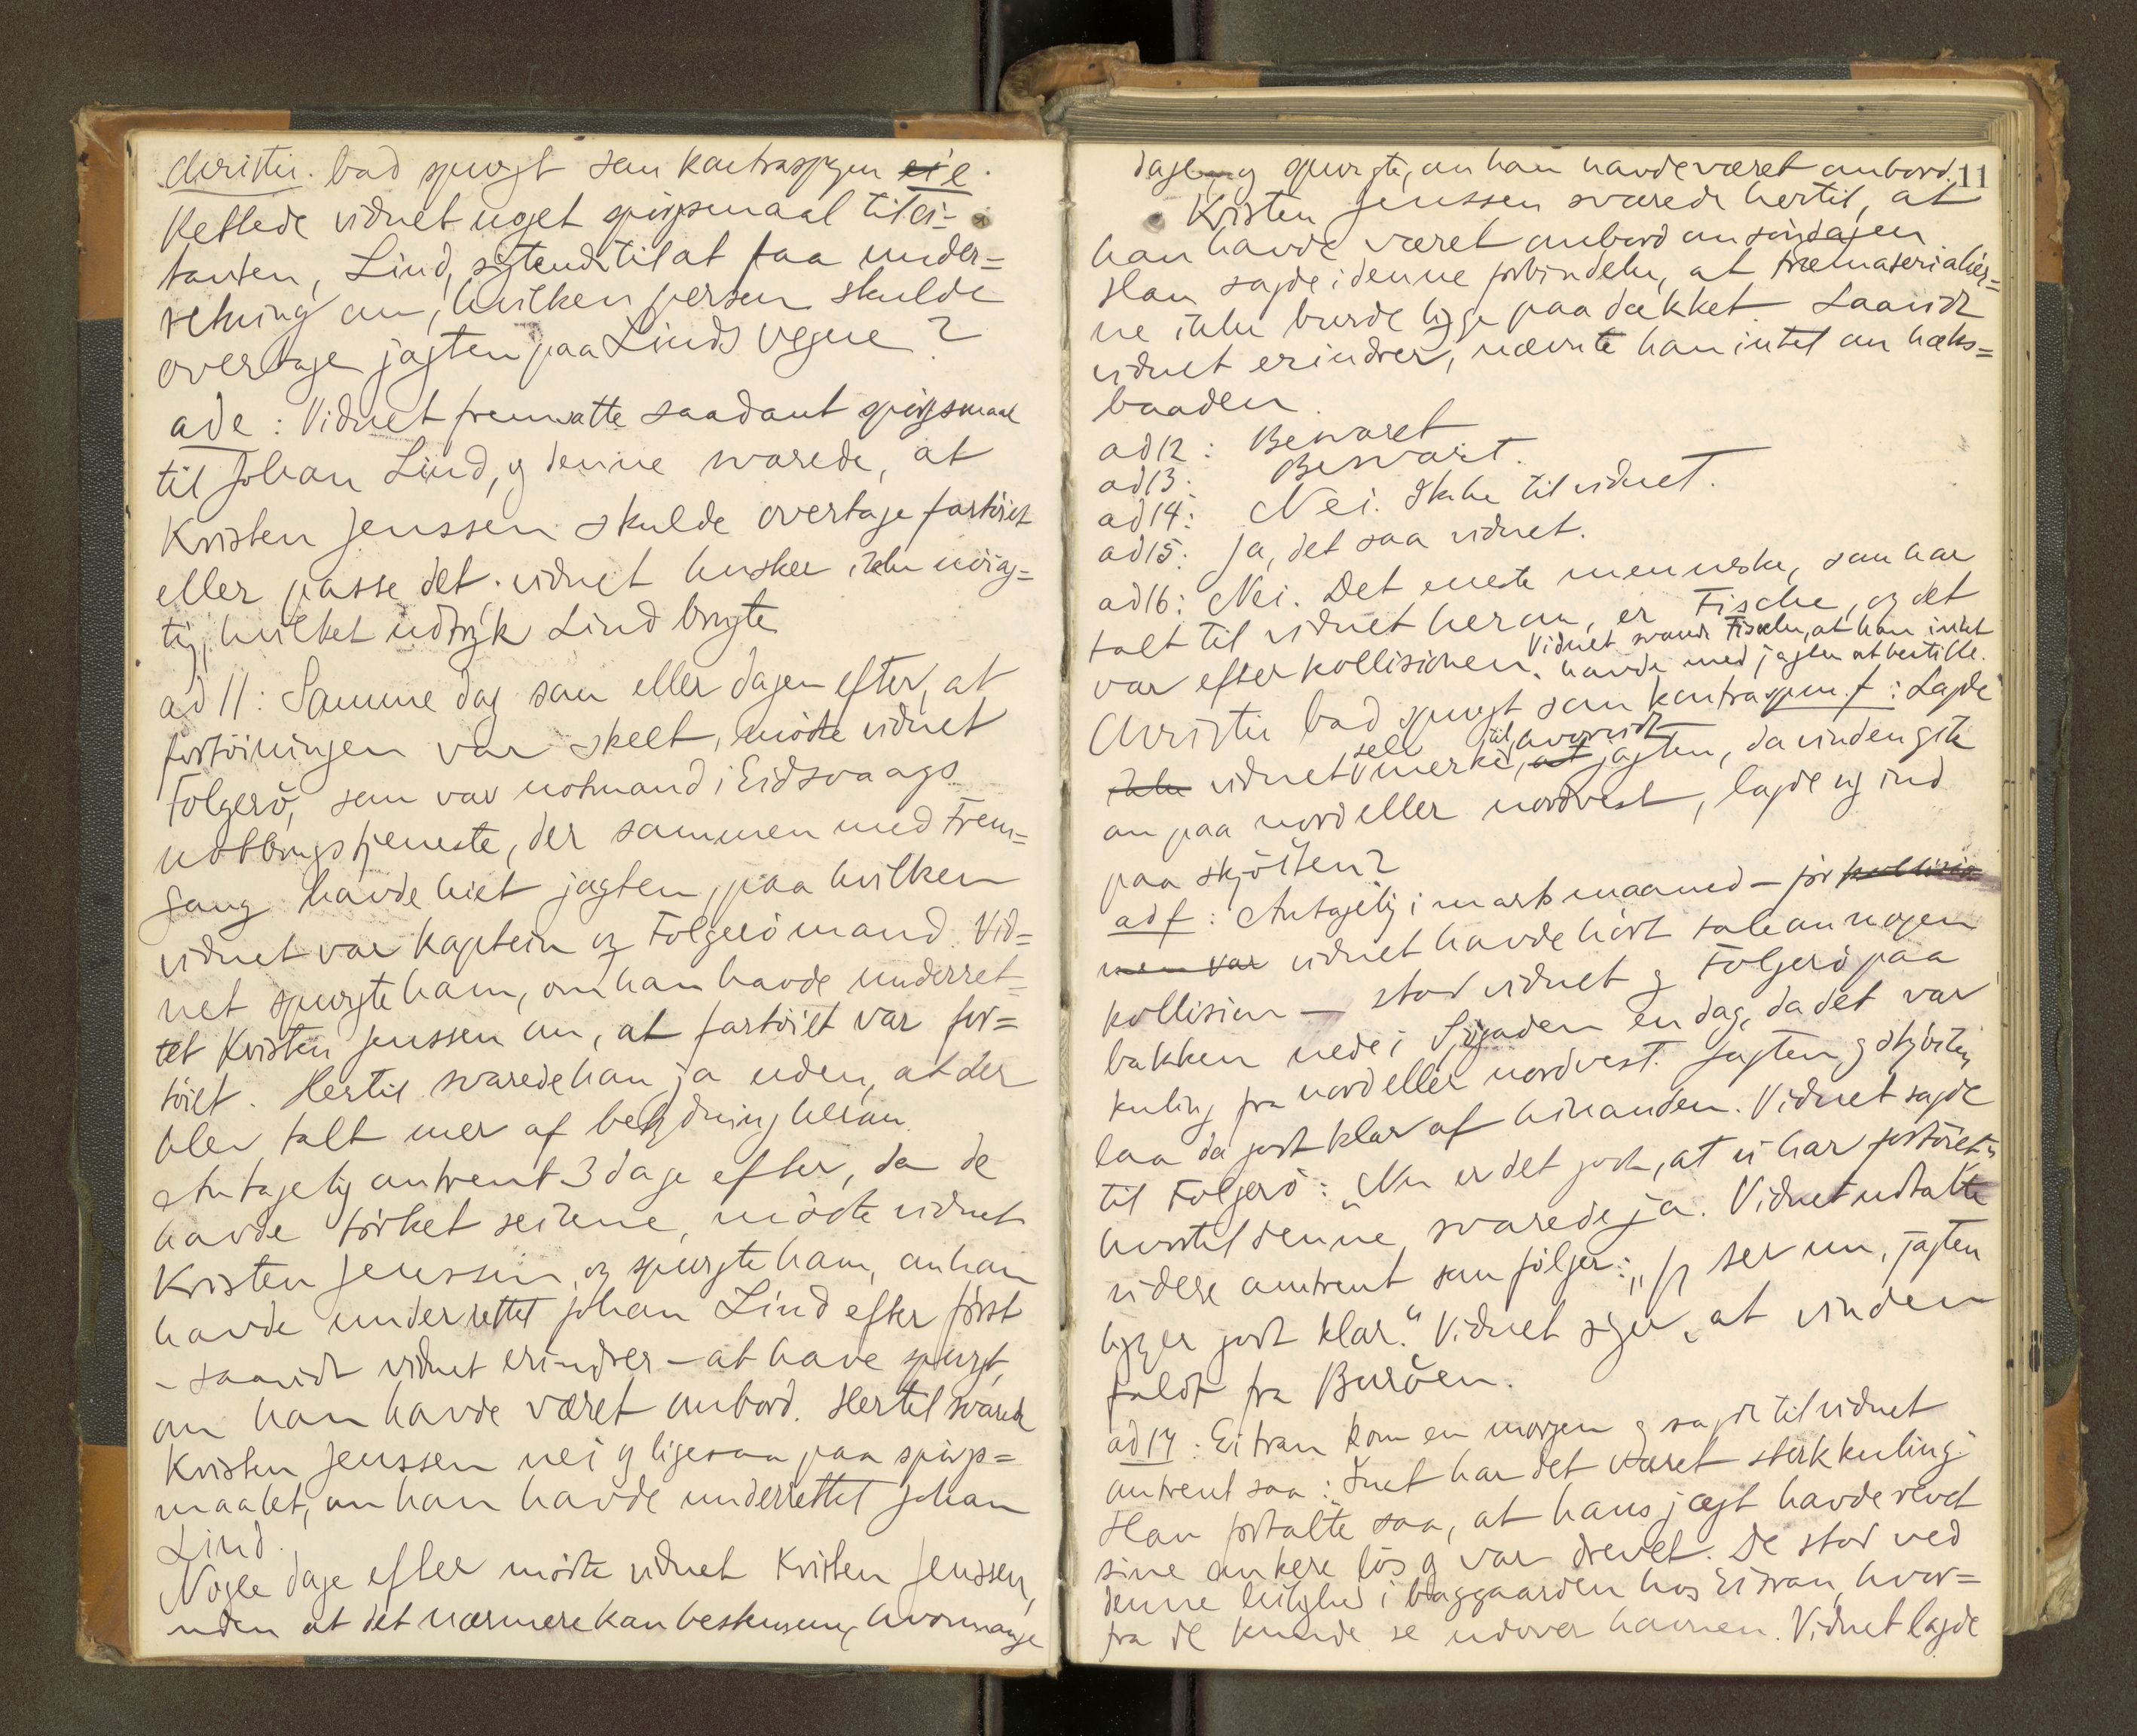 Christie. bad spurgt som kontraspgm e i e.
Rettede vidnet noget spörgsmaal til ci-
tanten, Lind, sigtende til at faa under=
retning om, hvilken person skulde
overtage jagten paa Linds vegne?
ad e: Vidnet fremsatte saadant spörgsmaal
til Johan Lind, og denne svarede, at
Kristen Jenssen skulde overtage fartöiet
eller passe det. vidnet husker ikke nöiag=
tig, hvilket udtryk Lind brugte
ad 11: Samme dag som eller dagen efter, at
fortöiningen var skeet, mödte vidnet
Folgerö, som var notmand i Eidsvaags
notbrugs tjeneste, der sammen med Frem=
gang havde leiet jagten, paa hvilken
vidnet var kaptein og Folgerö mand. Vid=
net spurgte ham, om han havde underret=
tet Kristen Jenssen om, at fartöiet var for=
töiet. Hertil svarede han ja uden, at der
blev talt mer af betydning herom.
Antagelig omtrent 3 dage efter, da de
havde törket seilene, mödte vidnet
Kristen Jenssen, og spurgte ham, om han
havde underrettet Johan Lind efter först
– saavidt vidnet erindrer – at have spurgt,
om han havde været ombord. Hertil svarede
Kristen Jenssen nei og ligesaa paa spörgs=
maalet, om han havde underrettet Johan
Lind.
Nogle dage efter mödte vidnet Kristen Jenssen,
uden at det nærmere kan bestemme, hvormange
11
dage, og spurgte, om han havde været ombord.
Kristen Jenssen svarede hertil, at
han havde været ombord om söndagen.
Han sagde i denne forbindelse, at træmaterialier=
ne ikke burde ligge paa dækket. Saavidt
vidnet erindrer, nævnte han intet om hæks=
baaden.
ad 12: Besvaret
ad 13: Besvart.
ad 14: Nei. Ikke til vidnet.
ad 15: Ja, det saa vidnet.
ad 16: Nei. Det eneste menneske, som har
talt til vidnet herom, er Fische, og det
var efter kollisionen. Vidnet svarede Fische, at han intet
havde med jagten at bestille.
Christie bad spurgt som kontraspgm. f: Lagde
ikke vidnet selv merke til, at hvorvidt jagten, da vinden gik
om paa nord eller nordvest, lagde sig ind
paa skjöiten?
ad f: Antagelig i marts maaned – för kollision
men var vidnet havde hört tale om nogen
kollision – stod vidnet og Folgerö paa
bakken nede i Sjögaden en dag, da det var
kuling fra nord eller nordvest. Jagten og skjöiten
laa da godt klar af hinanden. Vidnet sagde
til Folgerö: "Nu er det godt, at vi har fortöiet",
hvortil denne svarede ja. Vidnet udtalte
videre omtrent som fölger: "Vi ser nu, jagten
ligger godt klar." Vidnet siger, at vinden
faldt fra Buröen.
ad 17: Eitran kom en morgen og sagde til vidnet
omtrent saa: Inat har det været sterk kuling.
Han fortalte saa, at hans jægt havde revet
sine ankere lös og var drevet. De stod ved
denne leilighed i baggaarden hos Eitran, hvor=
fra de kunde se udover havnen. Vidnet lagde